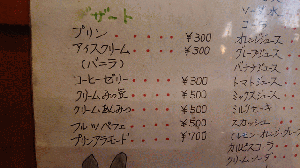 デザート
プリン・・・・・¥300
アイスクリーム・・・¥300
(バニラ)
コーヒーゼリー・・・¥300
クリームみつ豆・・・¥500
クリームあんみつ・・¥500
フルーツパフェ・・・¥500
プリンアラモード・・¥700
ソーダ水
コーラ
オレンジジュース
グレープジュース
バナナジュース
トマトジュース
ミックスジュース
ミルクセーキ
スカッシュ
(レモン・オレンジ・グレープ
カルピスコーラ